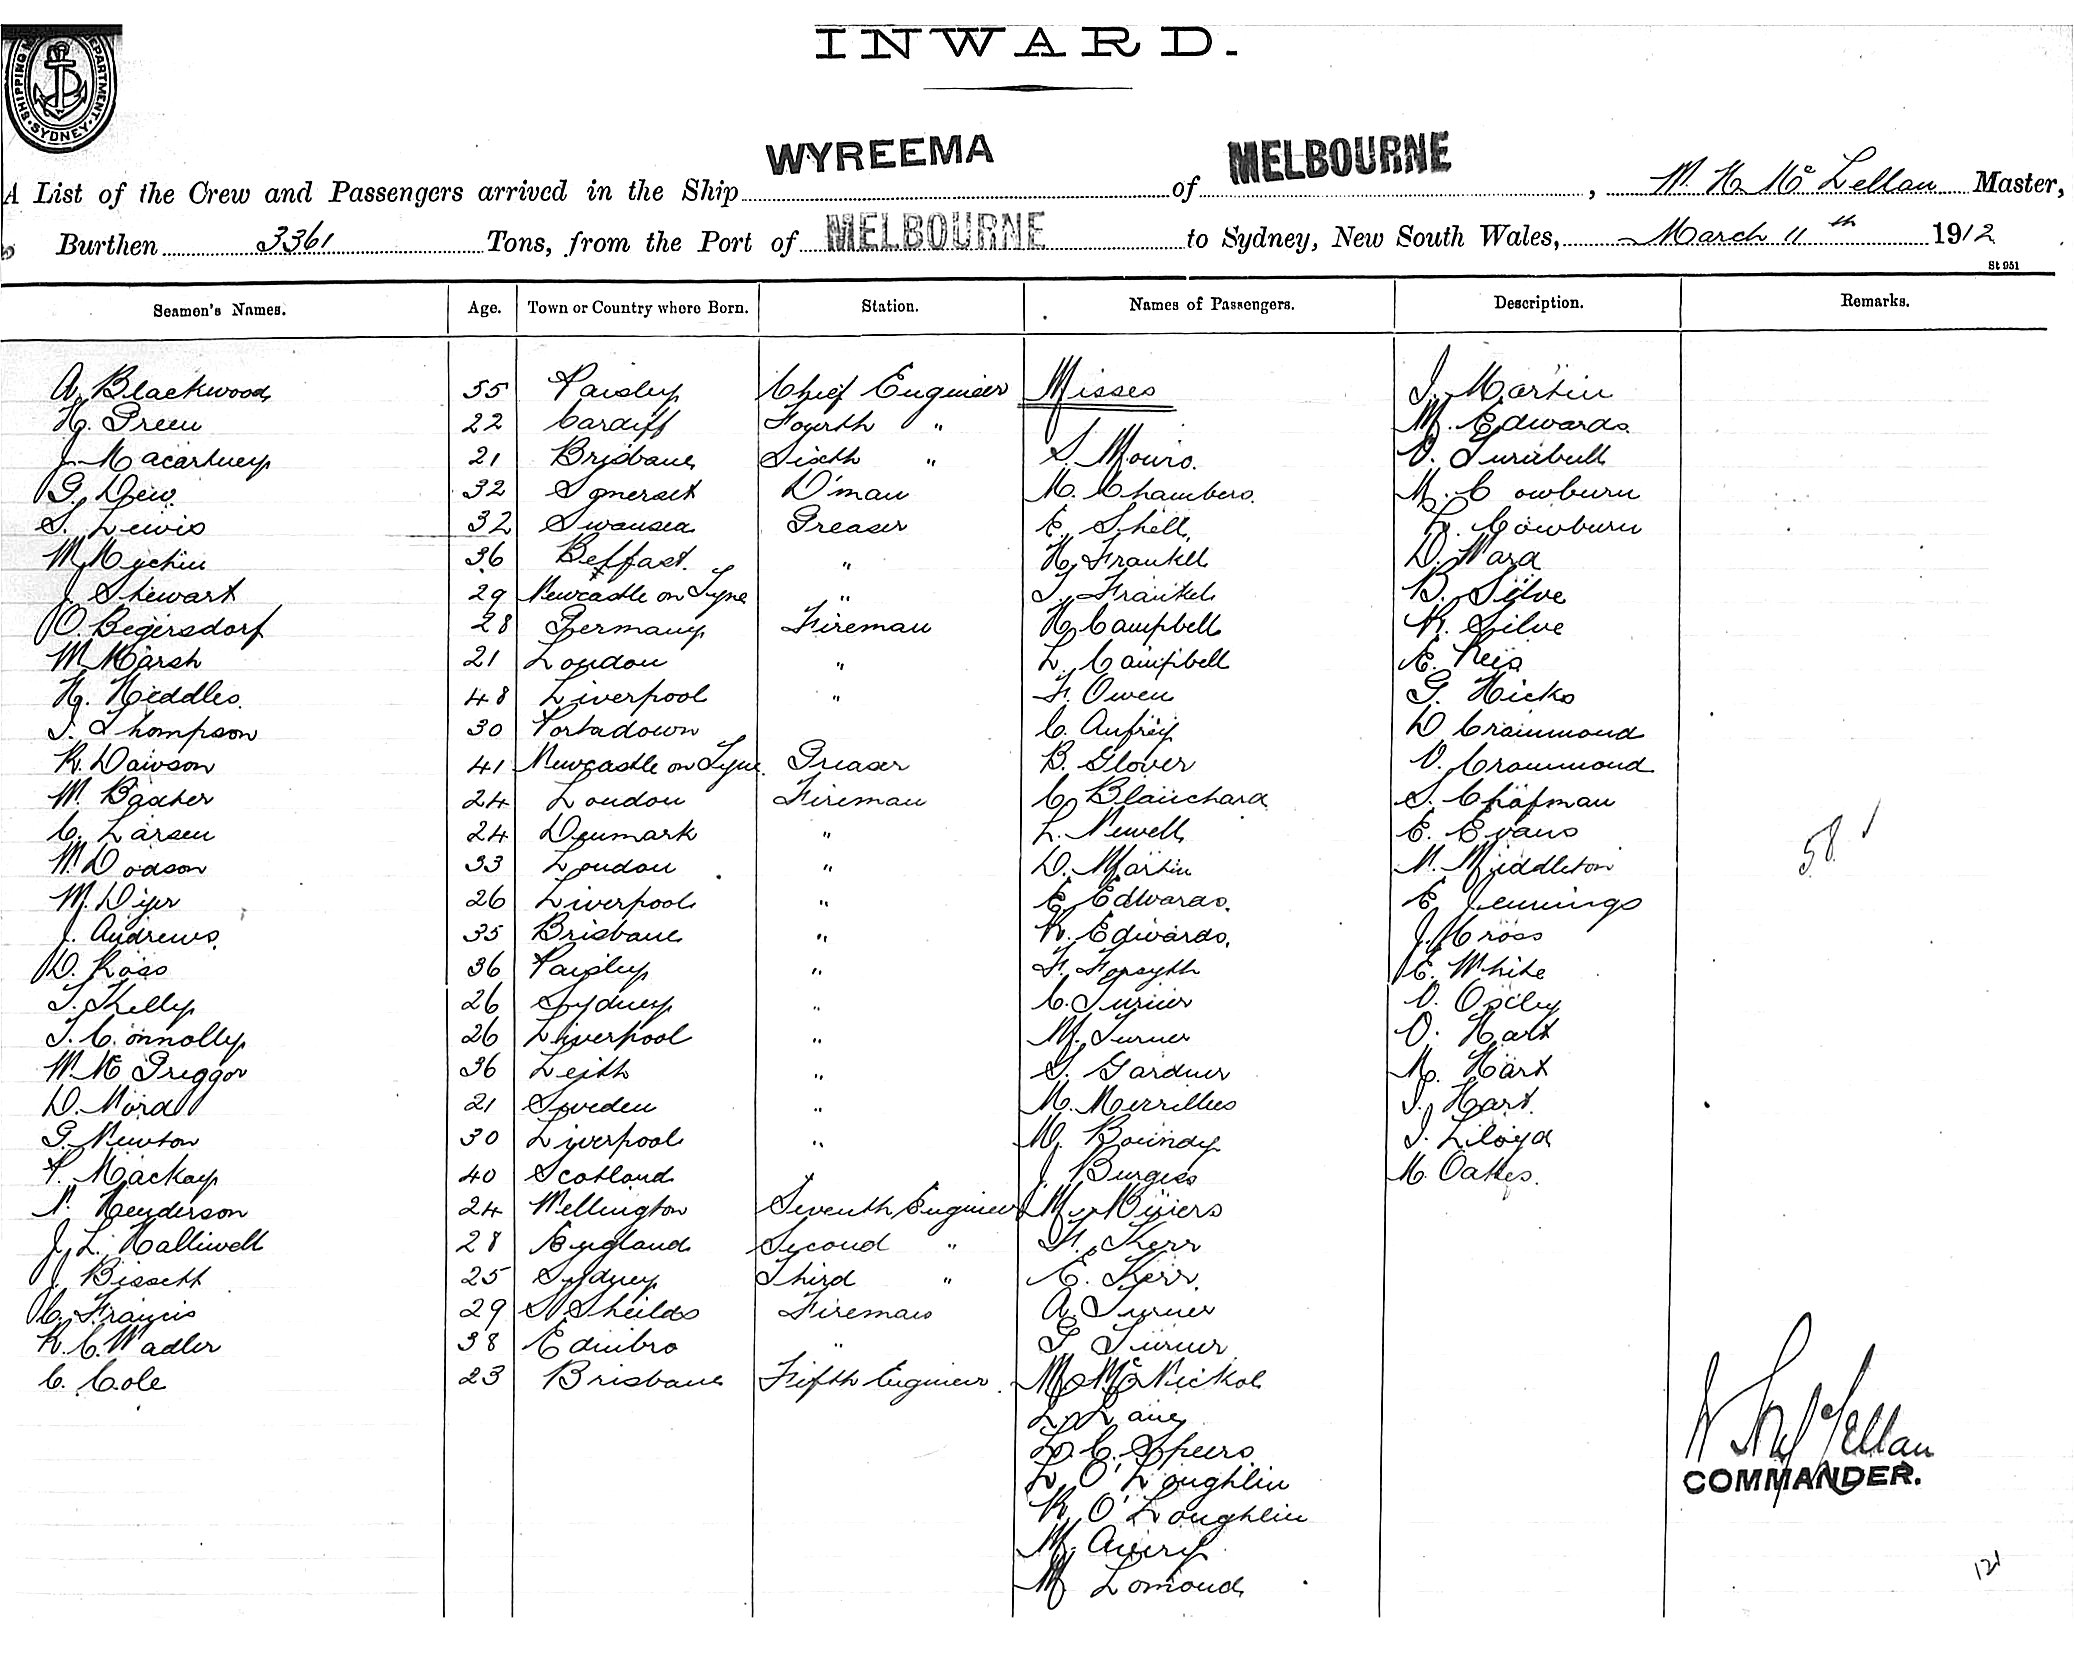 INWARD.
SHIPPING DEPARTMENT. SYDNEY
A List of the Crew and Passengers arrived in the Ship WYREEMA of MELBOURNE, Mc Lellan Master,
Burthen 3361 Tons, from the Port of MELBOURNE to Sydney, New South Wales, March 11th 1912
St 951
Seamen's Names. Age. Town or Country where Born. Station. Names of Passengers. Description. Remarks.
A. Blackwood 55 Paisley Chief Engineer Misses J. Martin
H. Green 22 Cardiff Fourth " M. Edwards.
J. Macartney 21 Brisbane Sixth " S. V. Turnbull
G. Dew. 32 Somerset D'man M. Chambers. M. Cowburn
S. Lewis 32 Swansea Greaser E. Shell. L. Cowburn
W. 36 Belfast. " H. Frankel D. Ward
J. Stewart 29 Newcastle on Tyne " J. Frankel B. Silve
O. Begersdorf 28 Germany Fireman H. Campbell R. Silve
W. Marsh 21 London " L. Campbell E. Reis
H. Heddles. 48 Liverpool " F. Owen G. Hicks
J. Thompson 30 Portadown C. Aufrey D Crammond
R. Dawson 41 Newcastle on Tyne. Greaser B. Glover V. Crammond
W. Baxter 24 London Fireman C. Blanchard S. Chapman
C. Larsen 24 Denmark " L. Newell E. Evans 58
W. Dodson 33 London " D. Martin N. Middleton
M. Dyer 26 Liverpool " E. Edwards. E. Jennings
J. Andrews. 35 Brisbane " R. Edwards. J. Cross
D. Ross 36 Paisley " F. Forsyth E. White
T. Kelly 26 Sydney " C. Turner V.
T. Connolly 26 Liverpool " M. Turner O. Hart
W. Mc Greggor 36 Leith " S. Gardner M. Hart
D. Nord 21 Sweden " M. Merrillees J. Hart.
G. Newton 30 Liverpool " W. Boundy J. Lloyd
P. Mackay 40 Scotland " J. Burgess M. Oakes.
N. Henderson 24 Wellington Seventh Engineer M.
J. L. Halliwell 28 England Second " F. Kerr
J. Bissett 25 Sydney Third " E. Kerr.
C. Francis 29 S Sheilds Fireman A. Turner
R. C. Wadler 38 Edinbro " G Turner
C. Cole 23 Brisbane Fifth Engineer. M. McNickol
L. Lane
L. C. Speers
L. O'Loughlin
R. O'Loughlin
M. Avery
M Lomond
McLellan
COMMANDER.
121